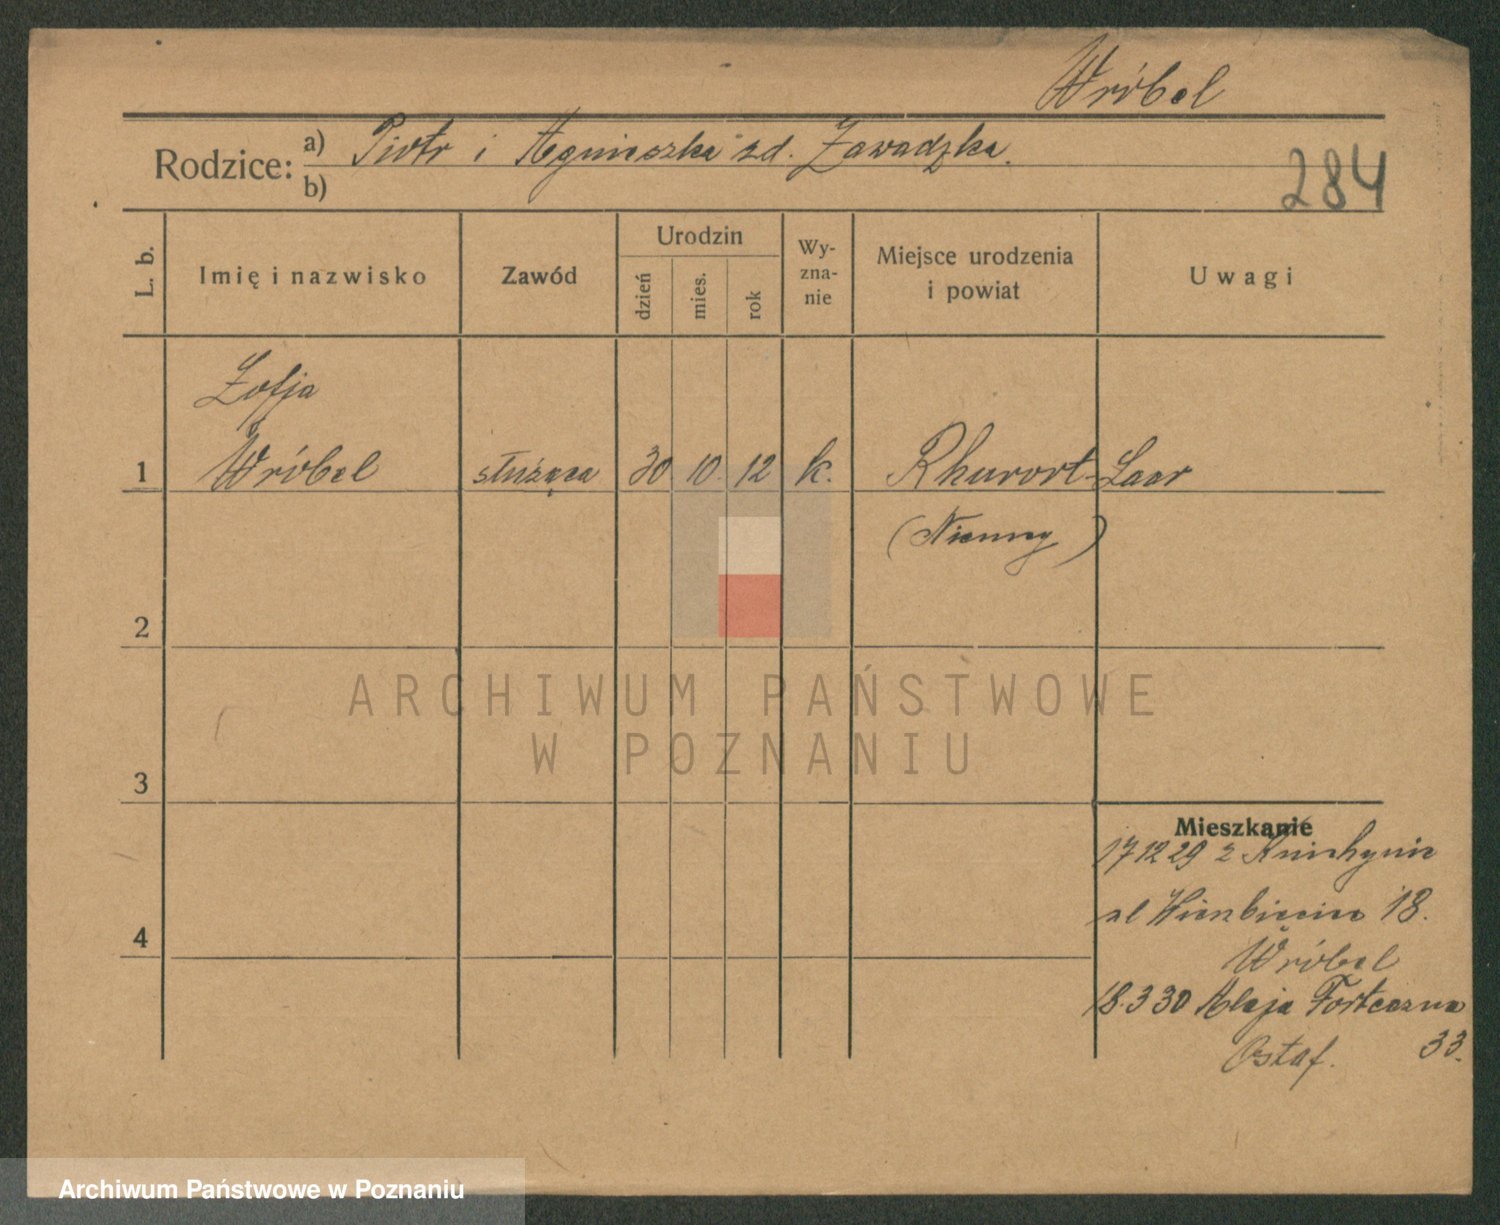 Wróbel
Rodzice: a) Piotr i Agnieszka zd. Zawadzka.
b)
284
L. b. Imię i nazwisko Zawód Urodzin dzień mies. rok Wyznanie Miejsce urodzenia i powiat Uwagi
Zofja
1 Wróbel służąca 30 10. 12 k. Rhurort-Laar
(Niemcy)
2
3
4
Mieszkanie
17 12 29 z
18.
Wróbel
18.3 30 Aleja Forteczna
Ostaf. 33.
ARCHIWUM PAŃSTWOWE
W POZNANIU
Archiwum Państwowe w Poznaniu